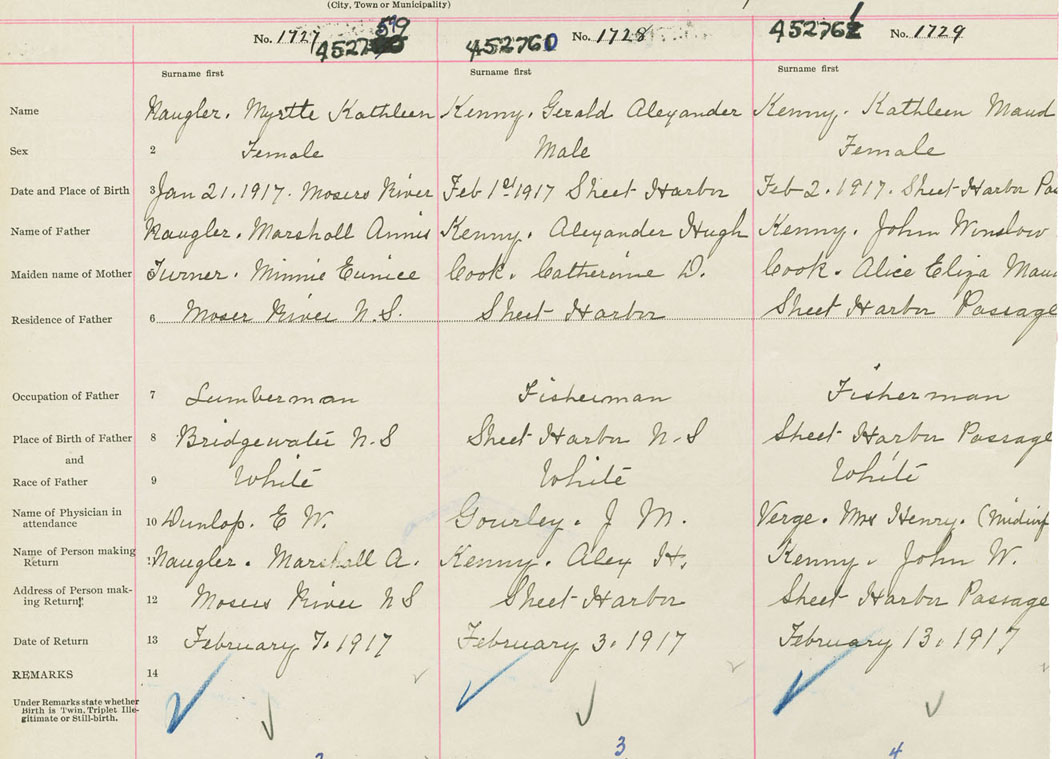 (City, Town or Municipality)
No. 1727 No. 1728 No. 1729
452760 452761
Surname first Surname first Surname first
Name Naugler. Myrtte Kathleen Kenny. Gerald Alexander Kenny. Kathleen Maud
Sex 2 Female Male Female
Date and Place of Birth 3 Jan 21. 1917. Mosers River Feb 1st 1917 Sheet Harbor Feb 2. 1917. Sheet Harbor Pas
Name of Father Naugler. Marshall Annis Kenny. Alexander Hugh Kenny. John Winslow
Maiden name of Mother Turner. Minnie Eunice Cook. Catherine D. Cook. Alice Eliza Mau
Residence of Father 6 Moser River N.S. Sheet Harbor Sheet Harbor Passage
Occupation of Father 7 Lumberman Fisherman Fisherman
Place of Birth of Father 8 Bridgewater N.S Sheet Harbor N-S Sheet Harbor Passage
and
Race of Father 9 White White White
Name of Physician in
attendance 10 Dunlop. E W. Gourley. J M. Verge. Mrs Henry. (Midwif
Name of Person making
Return Naugler. Marshall A. Kenny. Alex H. Kenny. John W.
Address of Person mak-
ing Return 12 Mosers River N S Sheet Harbor Sheet Harbor Passage
Date of Return 13 February 7. 1917 February 3. 1917 February 13. 1917
REMARKS 14
Under Remarks state whether
Birth is Twin, Triplet Ille-
gitimate or Still-birth.
3 4